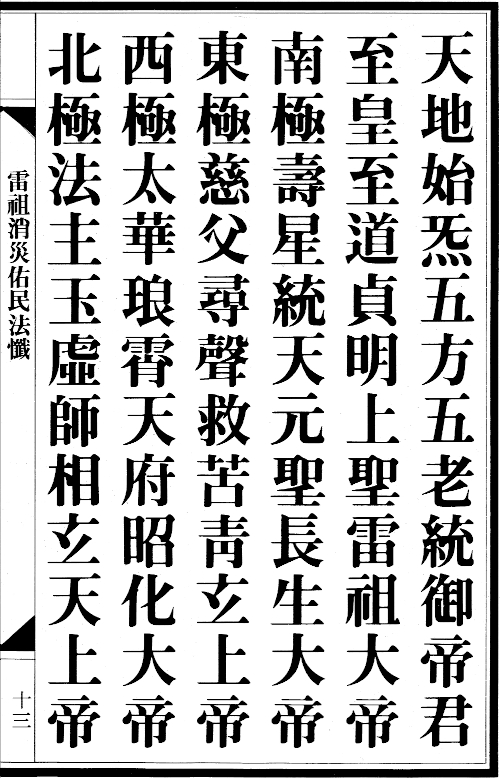 天地始炁五方五老統御帝君
至皇至道貞明上聖雷祖大帝
南極壽星統天元聖長生大帝
東極慈父尋聲救苦青玄上帝
西極太華琅霄天府昭化大帝
北極法主玉虛師相玄天上帝
雷祖消災佑民法懺
十三